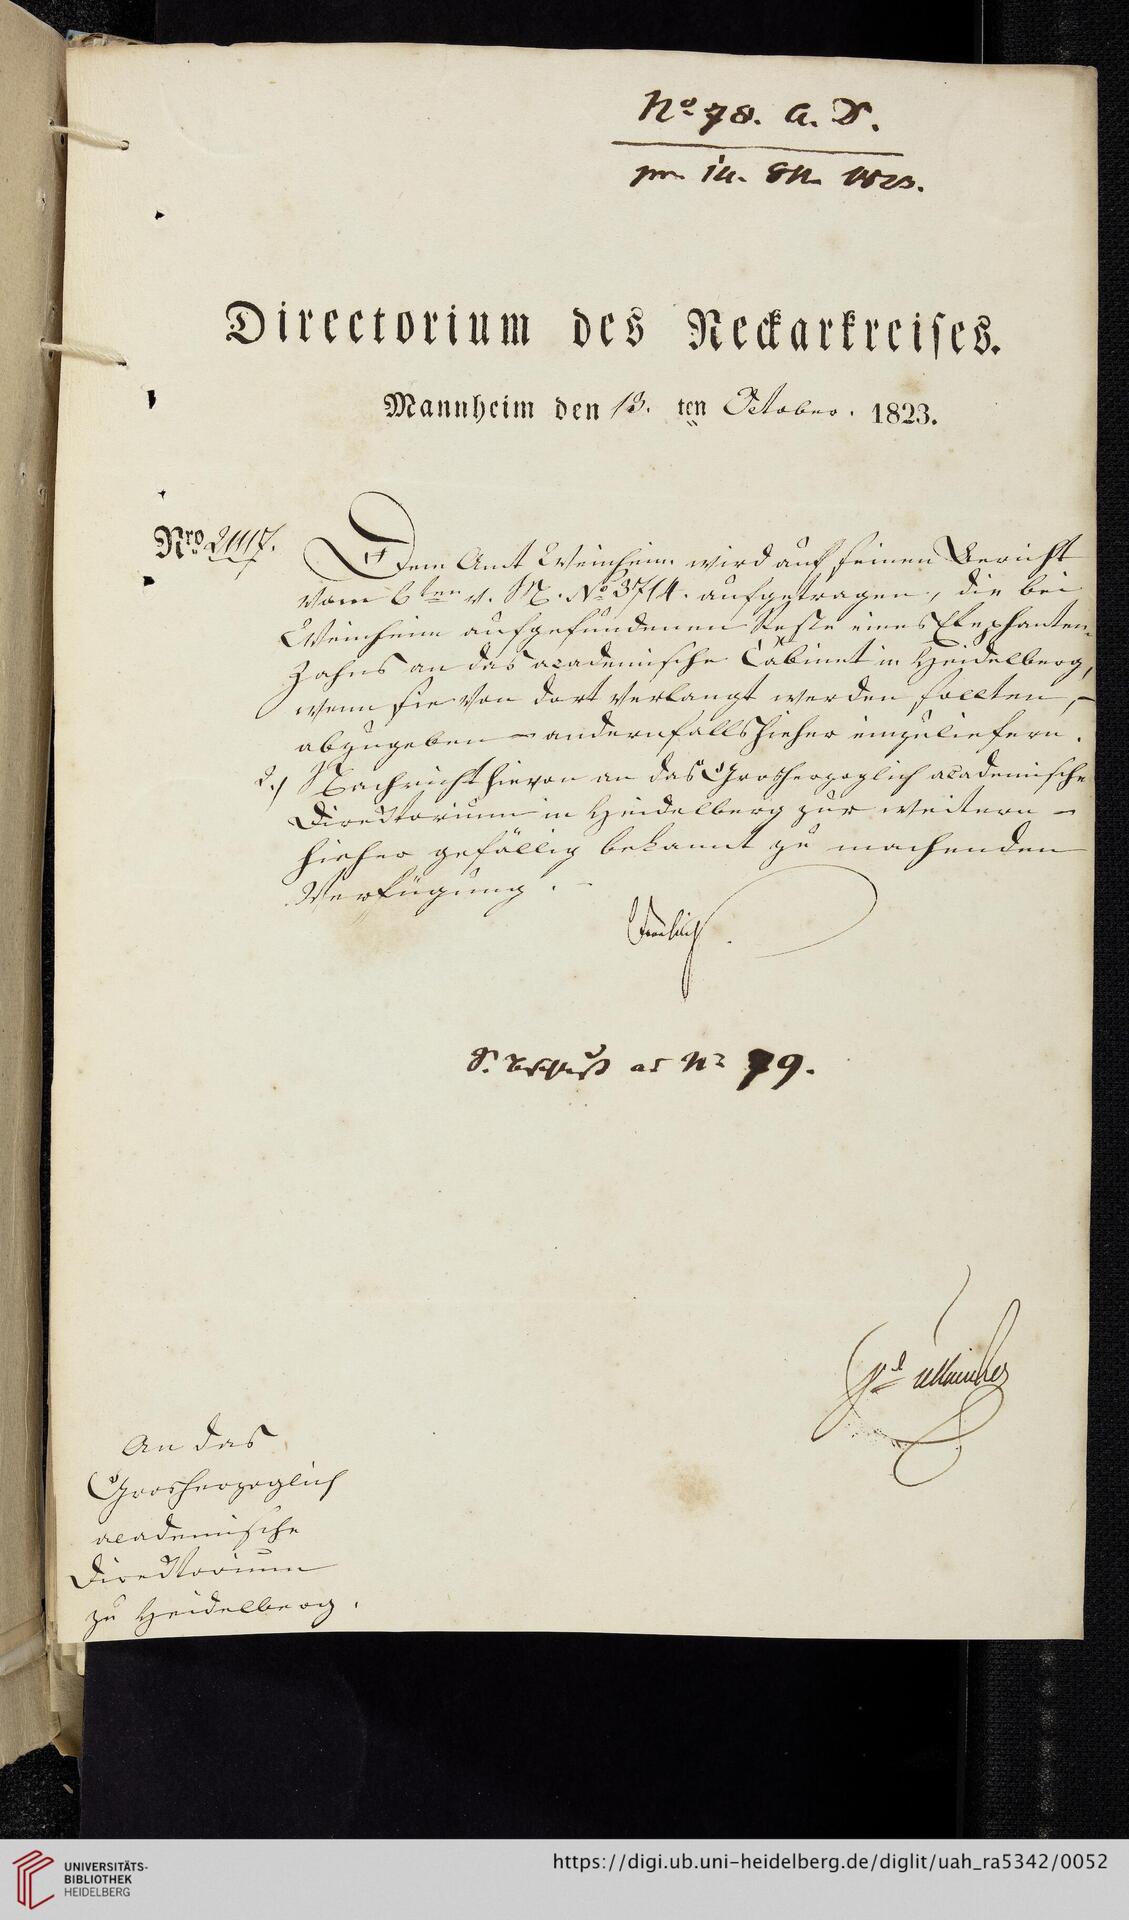 No 78. A. D.
pr. 14. 8br 1823.
Directorium des Neckarkreises.
Mannheim den 13. ten October. 1823.
Nro 21117. Dem Amt Weinheim wird auf seinen Bericht
vom 6ten v. M. No 3714. aufgetragen, die bei
Weinheim aufgefundenen Reste eines Elephanten-
Zahns an das academische Cabinet in Heidelberg,
wenn sie von dort verlangt werden sollten, –
abzugeben – andernfalls hieher einzuliefern.
2.) Nachricht hievon an das Grosherzoglich academische
Directorium in Heidelberg zur weitern –
hieher gefällig bekannt zu machenden
Verfügung. –
Froehlich.
S. Beschluß ad No 79.
An das
Grosherzoglich
academische
Directorium
zu Heidelberg.
UNIVERSITÄTS-
BIBLIOTHEK
HEIDELBERG
https://digi.ub.uni-heidelberg.de/diglit/uah_ra5342/0052